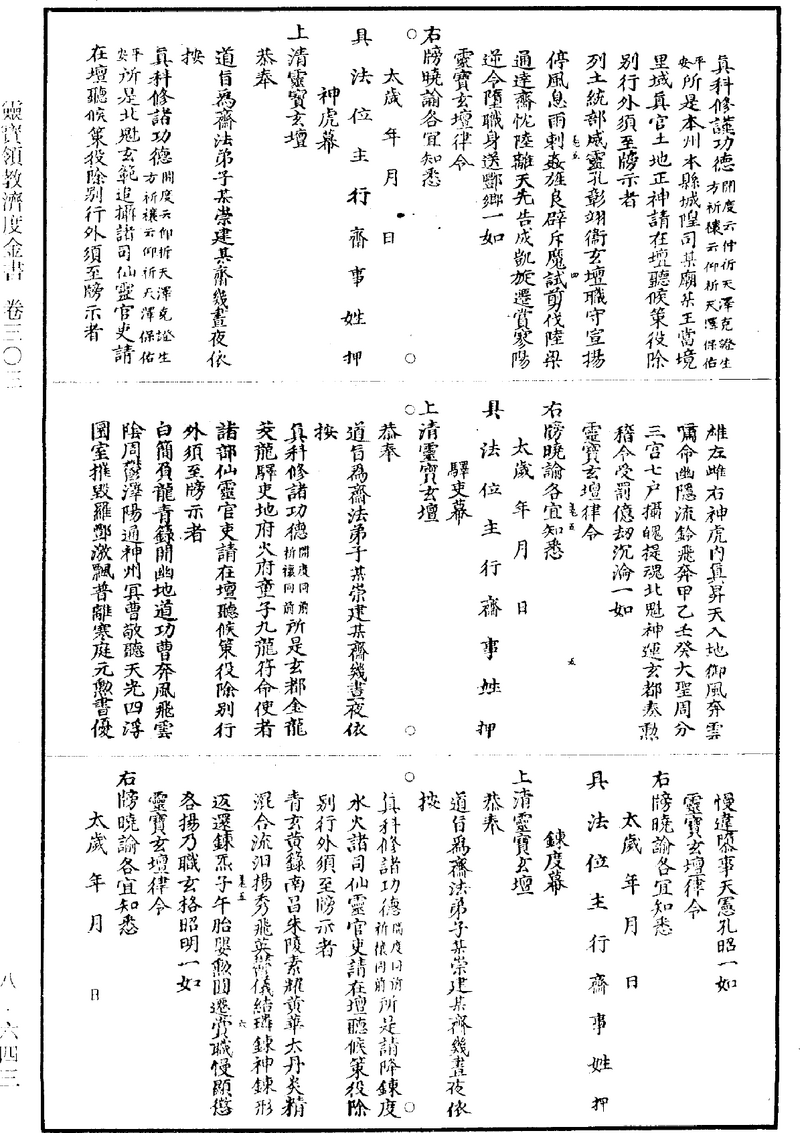 真科修謹功德開度云仰祈天澤克證生方祈禳云仰祈天澤保佑
平安所是本州本縣城隍司某廟某王當境
里域真官土地正神請在壇聽候策役除
別行外須至牓示者
列土統部威靈孔彰翊衛玄壇職守宣揚
停風息雨刺姦旌良辟斥魔試剪伐陸梁
通達齋忱陸離天先告成凱旋遷賞寥陽
逆令墮職身送酆鄉一如
靈寶玄壇律令
右牓曉諭各宜知悉
太歲年月日
具法位主行齋事姓押
神虎幕
上清靈寶玄壇
恭奉
道旨為齋法弟子某崇建某齋幾晝夜依
按
真科修諸功德開度云仰祈天澤克證生方祈禳云仰祈天澤保佑
平安所是北魁玄範追攝諸司仙靈官吏請
在壇聽候策役除別行外須至牓示者
雄左雌右神虎內真昇天入地御風奔雲
嘯命幽隱流鈴飛奔甲乙壬癸大聖周分
三宮七戶攝魄提魂北魁神運玄都奏勲
稽令受罰億劫沉淪一如
靈寶玄壇律令
右牓曉諭各宜知悉
太歲年月日
具法位主行齋事姓押
驛吏幕
上清靈寶玄壇
恭奉
道旨為齋法弟子某崇建某齋幾晝夜依
按
真科修諸功德開度同前祈禳同前所是玄都金龍
茭龍驛吏地府火府童子九龍符命使者
諸部仙靈官吏請在壇聽候策役除別行
外須至牓示者
白簡負龍青錄開幽地道功曹奔風飛雲
陰周舊澤陽通神州冥曹敬聽天光四浮
圜室摧毀羅酆激飄普離寒庭元勲書優
慢違隳事天憲孔昭一如
靈寶玄壇律令
右牓曉諭各宜知悉
太歲年月日
具法位主行齋事姓押
鍊度幕
上清靈寶玄壇
恭奉
道旨為齋法弟子某崇建某齋幾晝夜依
按
真科修諸功德開度同前祈禳同前所是請降鍊度
水火諸司仙靈官吏請在壇聽候策役除
別行外須至牓示者
青玄黃籙南昌朱陵素耀黃華太丹炎精
混合流汩揚秀飛英鬱儀結璘鍊神鍊形
返還鍊炁子午胎嬰勲圓遷賞職慢顯愆
各揚乃職玄格昭明一如
靈寶玄壇律令
右牓曉諭各宜知悉
太歲年月日
靈寶領教濟度金書 卷三〇三
八·六四三